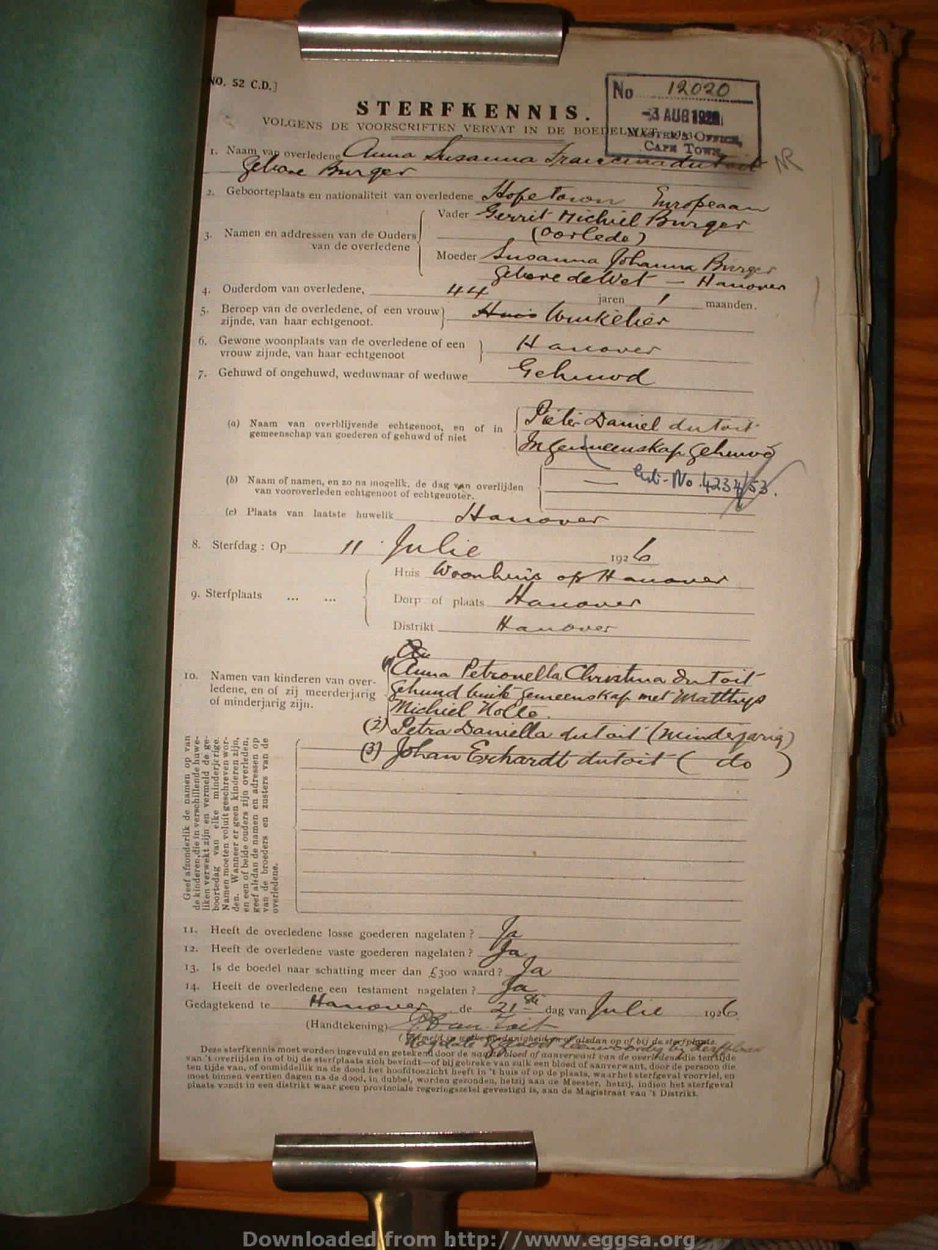 NO. 52 C.D.]
No 12020
-3 AUG 1926
MASTER'S OFFICE,
CAPE TOWN.
STERFKENNIS.
VOLGENS DE VOORSCHRIFTEN VERVAT IN DE BOEDELWET, 1913
1. Naam van overledene Anna Susanna Francina du Toit
gebore Burger
NR
2. Geboorteplaats en nationaliteit van overledene Hopetown Europeaan
3. Namen en addressen van de Ouders van de overledene
Vader Gerrit Michiel Burger
(oorlede)
Moeder Susanna Johanna Burger
gebore de Wet — Hanover
4. Ouderdom van overledene, 44 jaren 1 maanden.
5. Beroep van de overledene, of een vrouw zijnde, van haar echtgenoot. Huis Winkelier
6. Gewone woonplaats van de overledene of een vrouw zijnde, van haar echtgenoot Hanover
7. Gehuwd of ongehuwd, weduwnaar of weduwe Gehuwd
(a) Naam van overblijvende echtgenoot, en of in gemeenschap van goederen of gehuwd of niet
Pieter Daniel du Toit
In gemeenskap gehuwd
(b) Naam of namen, en zo na mogelik, de dag van overlijden van vooroverleden echtgenoot of echtgenoter.
— Est. No. 4234/53.
(c) Plaats van laatste huwelik Hanover
8. Sterfdag : Op 11 Julie 1926
9. Sterfplaats ... ...
Huis Woonhuis op Hanover
Dorp of plaats Hanover
Distrikt Hanover
10. Namen van kinderen van overledene, en of zij meerderjarig of minderjarig zijn.
(1) Anna Petronella Christina du Toit
gehuud buite gemeenskap met Matthys
Michiel Nolle.
(2) Petra Daniella du Toit (minderjarig)
(3) Johan Erhardt du Toit ( do )
Geef afzonderlik de namen op van
de kinderen, die in verschillende huwe-
liken verwekt zijn en vermeld de ge-
boortedag van elke minderjarige.
Namen moeten voluit geschreven wor-
den. Wanneer er geen kinderen zijn,
en een of beide ouders zijn overleden,
geef alsdan de namen en adressen op
van de broeders en zusters van de
overledene.
11. Heeft de overledene losse goederen nagelaten ? Ja
12. Heeft de overledene vaste goederen nagelaten ? Ja
13. Is de boedel naar schatting meer dan £300 waard ? Ja
14. Heeft de overledene een testament nagelaten ? Ja
Gedagtekend te Hanover de 21ste dag van Julie 1926
(Handtekening) P D du Toit
Deze sterfkennis moet worden ingevuld en getekend door de naaste bloed of aanverwant van de overledene die ten tijde
van 't overlijden in of bij de sterfplaats zich bevindt—of bij gebreke van zulk een bloed of aanverwant, door de persoon die
ten tijde van, of onmiddellik na de dood het hoofdtoezicht heeft in 't huis of op de plaats, waar het sterfgeval voorviel, en
moet binnen veertien dagen na de dood, in dubbel, worden gezonden, hetzij aan de Meester, hetzij, indien het sterfgeval
plaats vondt in een distrikt waar geen provinciale regeringszetel gevestigd is, aan de Magistraat van 't Distrikt.
Downloaded from http://www.eggsa.org